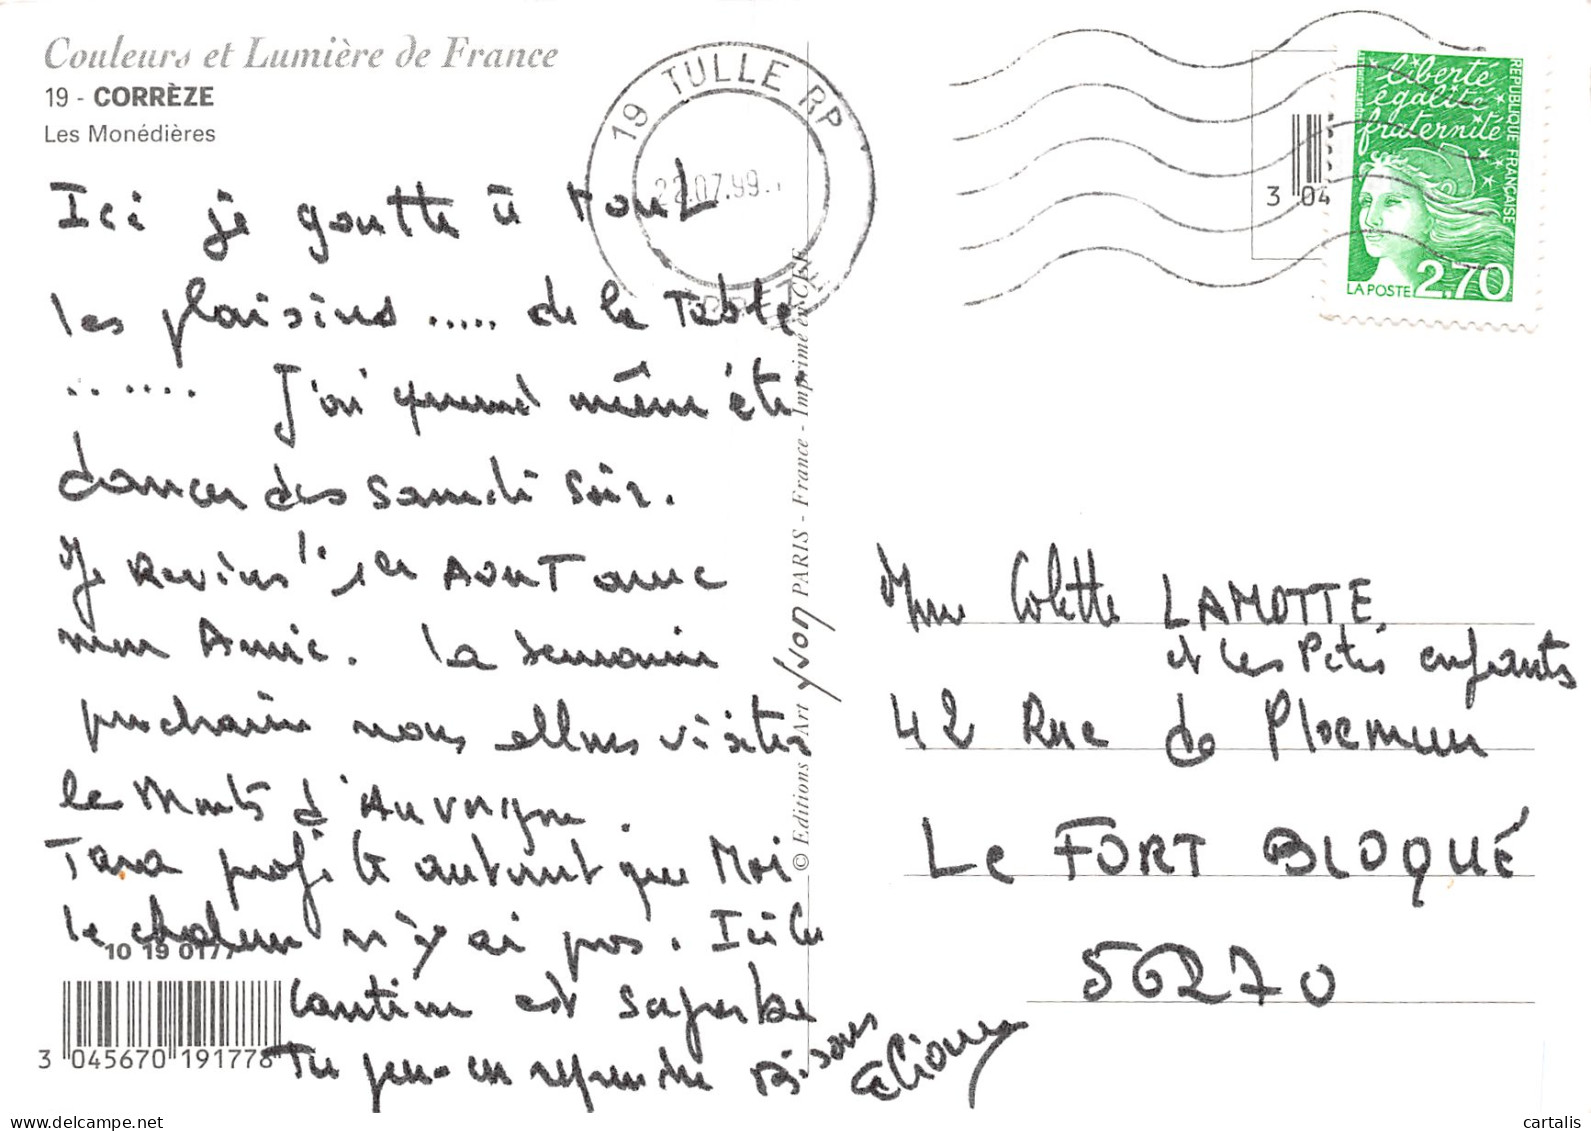 Couleurs et Lumière de France
19 - CORRÈZE
Les Monédières
Ici je goutte à tout
les plaisirs ..... de la Table
....... J'ai quand même été
danser des samedi soir.
Je reviens le 1er Aout avec
mon Amie. La semaine
prochaine nous allons visiter
le Monts d'Auvergne.
Tara profite autant que Moi
la chaleur n'y ai pas. Ici la
cantine est superbe
Tu peu en reprendre
Bisous
Eliane
10 19 0177
3 045670 191778
© Editions d'Art Yvon PARIS - France - Imprimé en CEE
19 TULLE RP
22.07.99
CORREZE
3 04
liberté
égalité
fraternité
REPUBLIQUE FRANÇAISE
LA POSTE 2,70
Mme Colette LAMOTTE
et les Petis enfants
42 Rue de Ploemeur
Le FORT BLOQUÉ
56270
© cartalis
www.delcampe.net